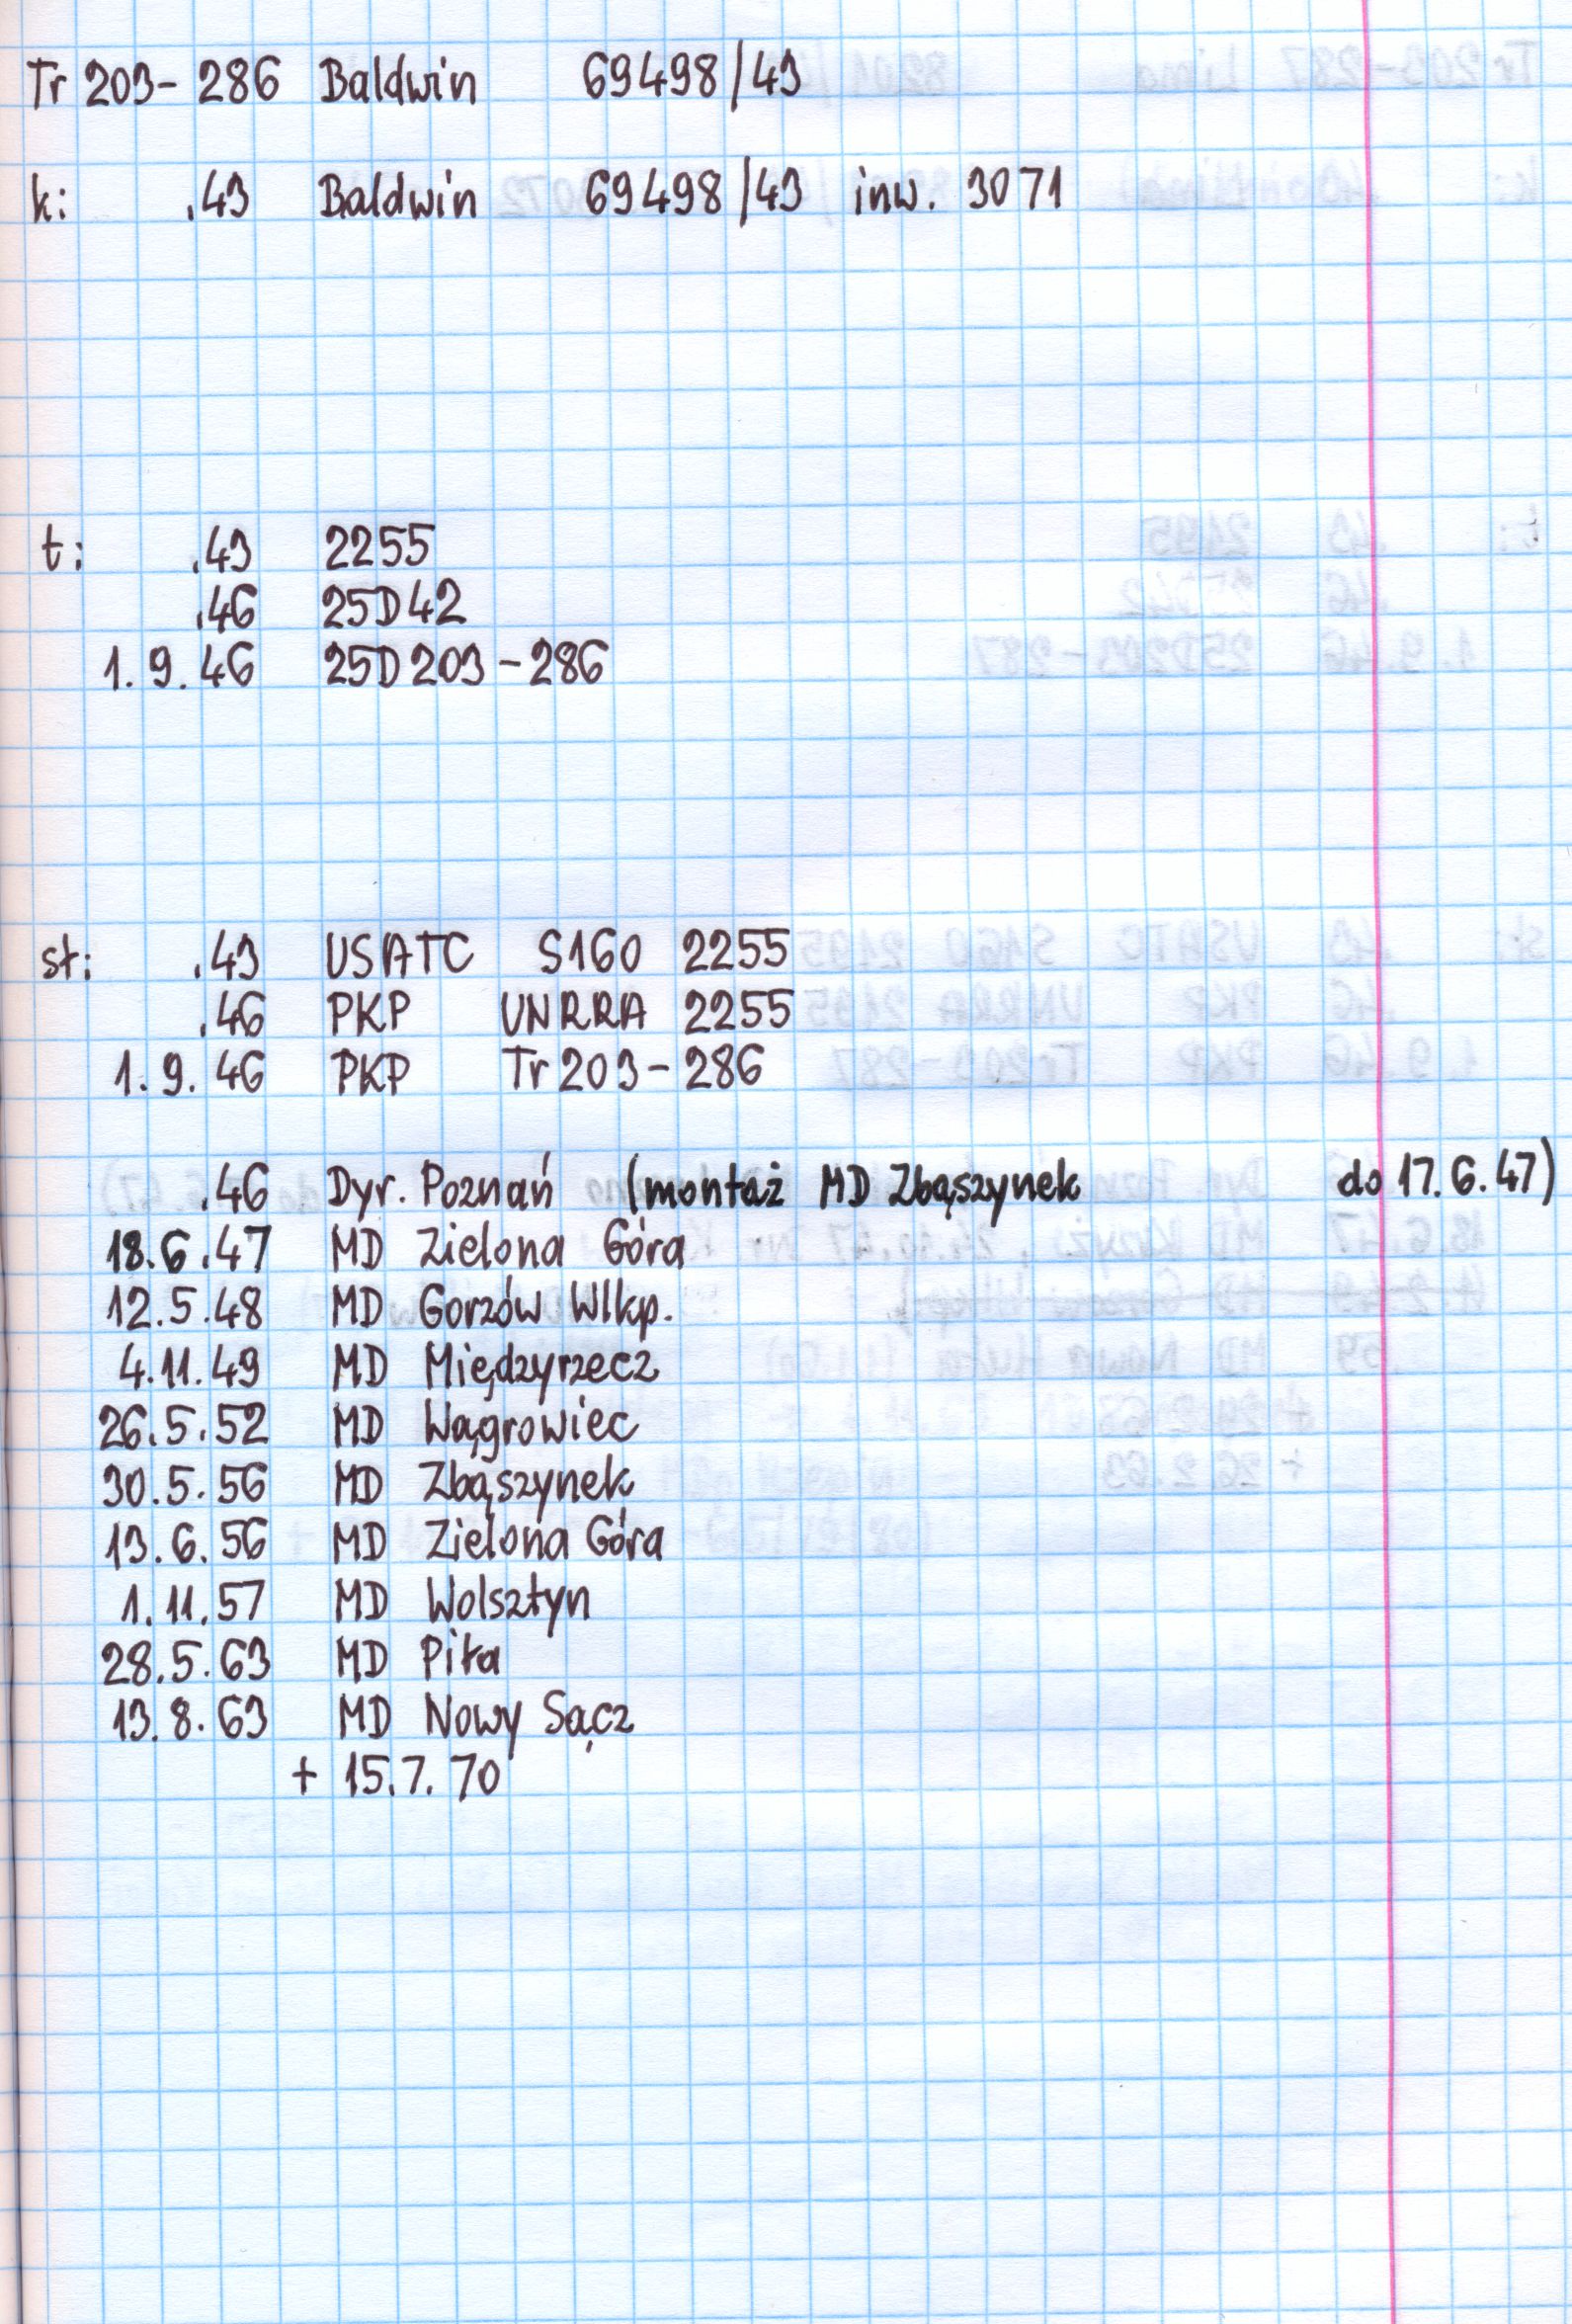 Tr 203-286 Baldwin 69498/43
k: .43 Baldwin 69498/43 inw. 3071
t: .43 2255
.46 25D42
1.9.46 25D203-286
st: .43 USATC S160 2255
.46 PKP UNRRA 2255
1.9.46 PKP Tr203-286
.46 Dyr. Poznań (montaż MD Zbąszynek do 17.6.47)
18.6.47 MD Zielona Góra
12.5.48 MD Gorzów Wlkp.
4.11.49 MD Międzyrzecz
26.5.52 MD Wągrowiec
30.5.56 MD Zbąszynek
13.6.56 MD Zielona Góra
1.11.57 MD Wolsztyn
28.5.63 MD Piła
13.8.63 MD Nowy Sącz
+ 15.7.70